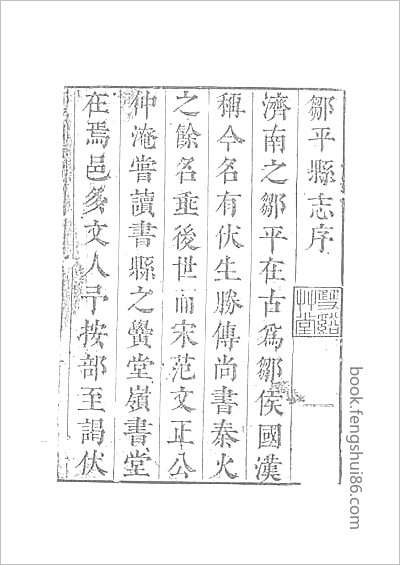 鄒平縣志序
濟南之鄒平在古爲鄒侯國漢
稱今名有伏生勝傳尚書秦火
之餘名垂後世而宋范文正公
仲淹嘗讀書縣之黌堂嶺書堂
在焉邑多文人予按部至謁伏
book.fengshui86.com